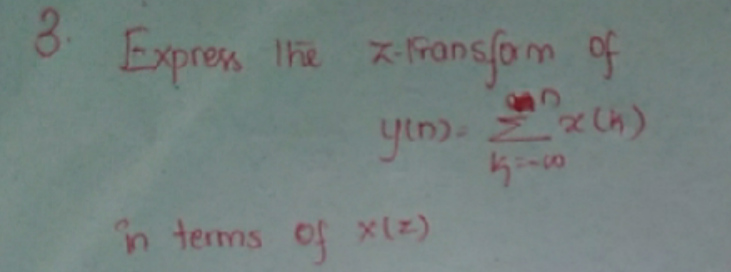 3. Express the z-transform of
y(n) = n∑k=-∞ x(k)
in terms of x(z)